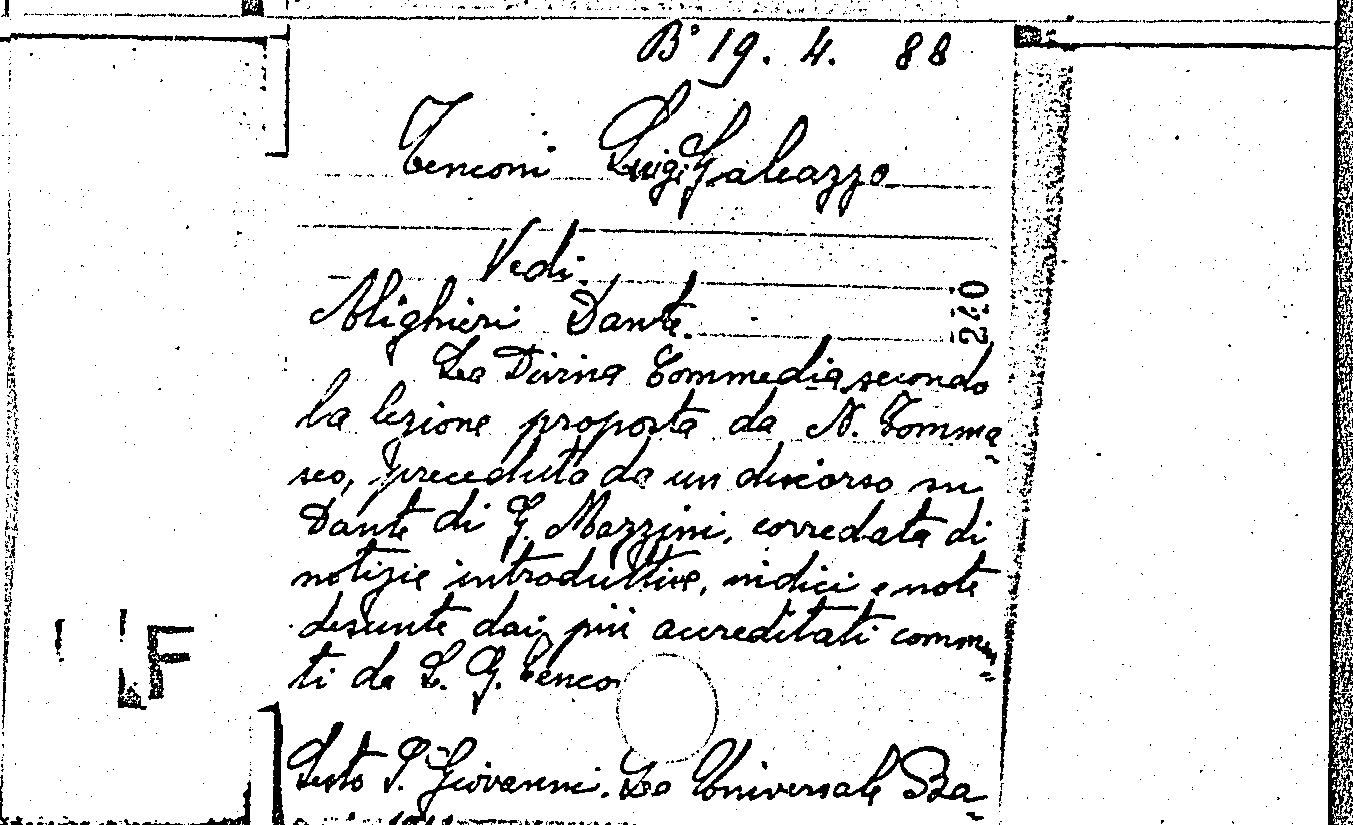 B° 19. 4. 88
Tenconi Luigi Galeazzo
Vedi
Alighieri Dante.
240
La Divina Commedia secondo
la lezione proposta da N. Tomma-
seo, preceduta da un discorso su
Dante di G. Mazzini, corredata di
notizie introduttive, indici e note
desunte dai più accreditati commen-
ti da L. G. Tenco
Sesto S. Giovanni. La Universale Ba-
F